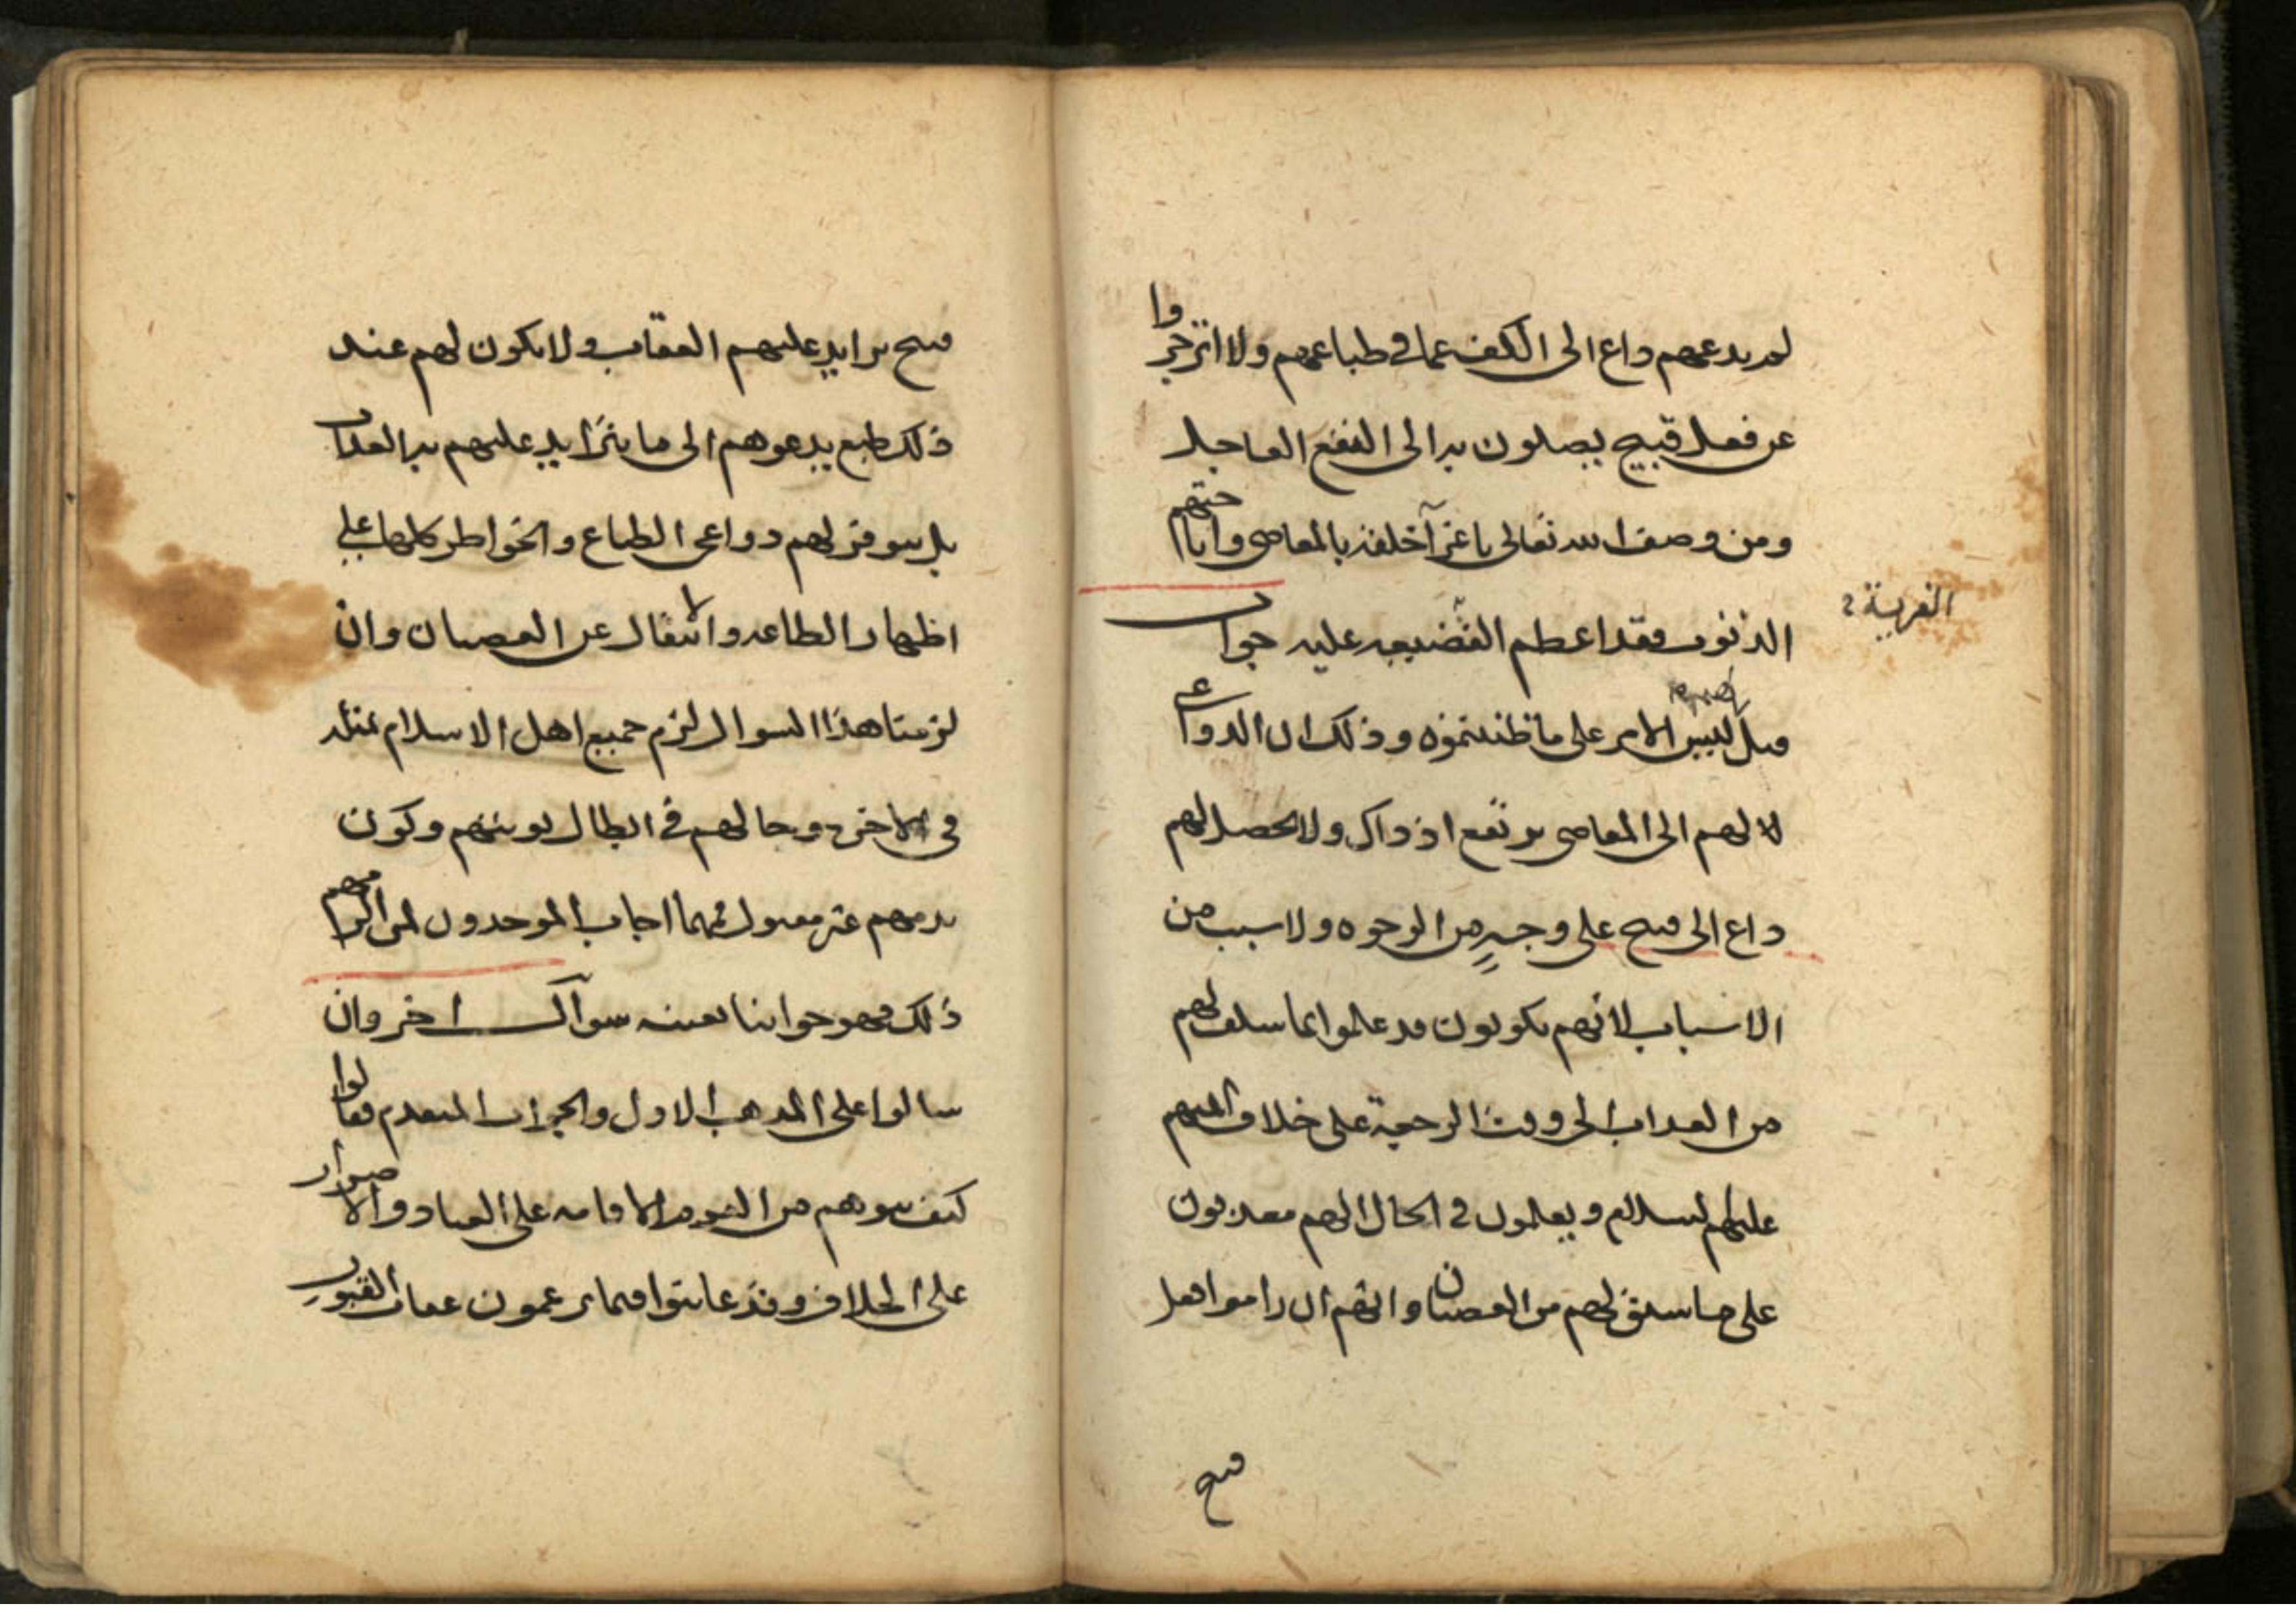 لم يدعهم داع الى الكف عما في طباعهم ولا انزجروا
عن فعل قبيح يصلون به الى النفع العاجل
ومن وصف الله تعالى باغرآ خلقه بالمعاصي واباحتهم
الذنوب فقد اعظم الفرية عليه جواب
الفرية
قيل ليس الامر على ما ظننتموه وذلك ان الدواعي
لا لهم الى المعاصي ترتفع اذ ذاك ولا يحصل لهم
داع الى قبيح على وجه من الوجوه ولا سبب من
الاسباب لانهم يكونون قد علموا بما سلف لهم
من العذاب الى وقت الرجعة على خلاف ائمتهم
عليهم السلام ويعلمون في الحال انهم معذبون
على ما سلف لهم من العصيان وانهم ان راموا فعل
قبيح
قبيح تزايد عليهم العقاب ولا يكون لهم عند
ذلك طبع يدعوهم الى ما يتزايد عليهم به العذاب
بل يتوفر لهم دواعي الطباع والخواطر كلها على
اظهار الطاعة والانتقال عن العصيان وان
لزمنا هذا السوال لزم جميع اهل الاسلام مثله
في الاخرة وحالهم في ابطال توبتهم وكون
ندمهم غير مقبول فمهما اجاب الموحدون لمن الزمهم
ذلك فهو جوابنا بعينه سوآل اخر وان
سالوا على المذهب الاول والجواب المتقدم فقالوا
كيف يتوهم من القوم الاقامة على العناد والاصرار
على الخلاف وقد عاينوا فيما يزعمون عقاب القبور